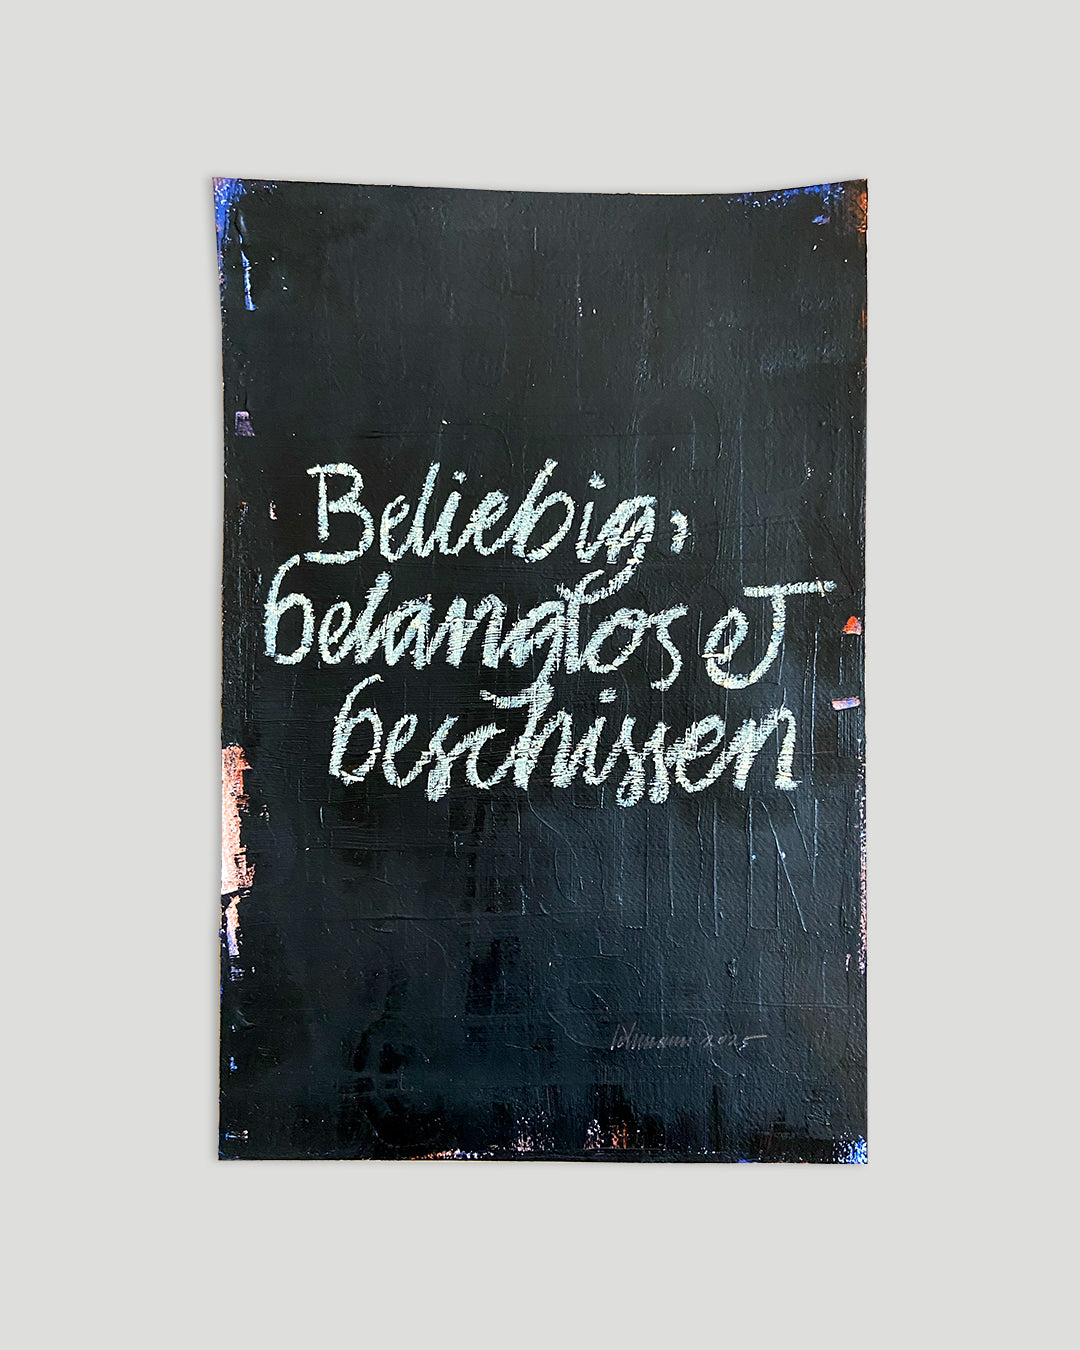 Beliebig,
belanglos et
beschissen
2025